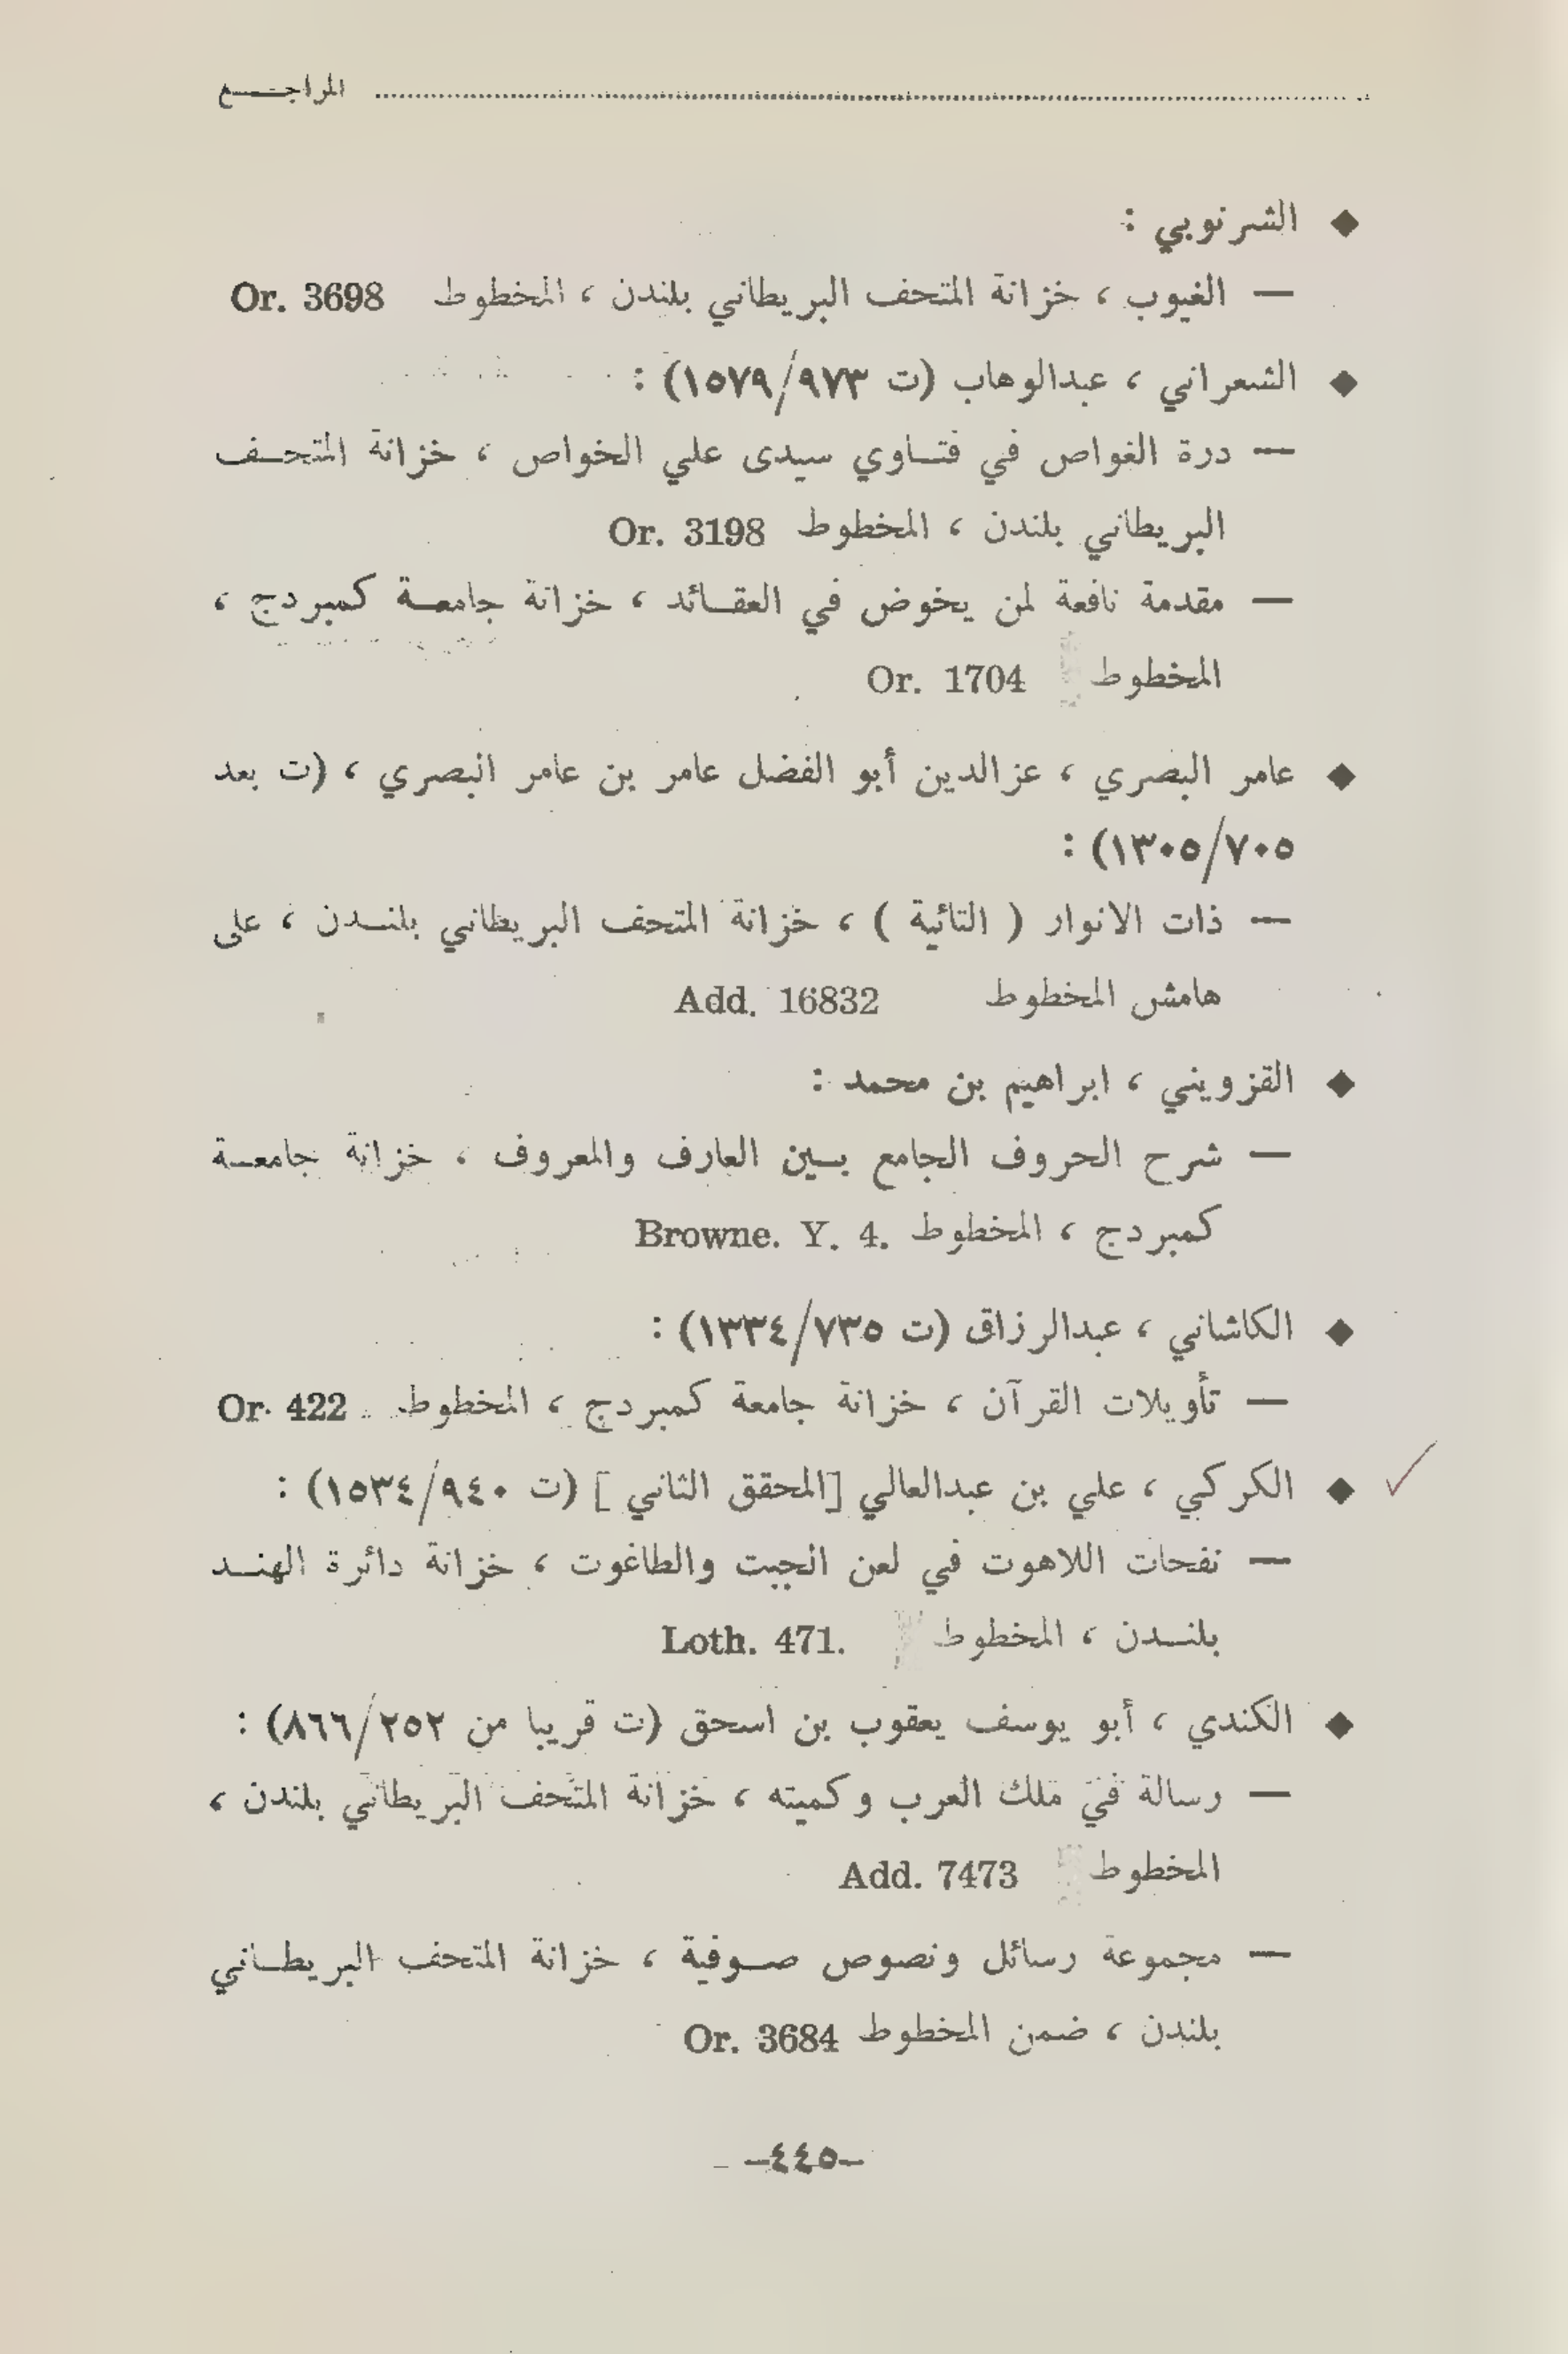 المراجـــع
◆ الشرنوبي :
— الغيوب ، خزانة المتحف البريطاني بلندن ، المخطوط Or. 3698
◆ الشعراني ، عبدالوهاب (ت ٩٧٣/١٥٧٩) :
— درة الغواص في فتـاوي سيدى علي الخواص ، خزانة المتحـف
البريطاني بلندن ، المخطوط Or. 3198
— مقدمة نافعة لمن يخوض في العقـائد ، خزانة جامعـة كمبردج ،
المخطوط Or. 1704
◆ عامر البصري ، عزالدين أبو الفضل عامر بن عامر البصري ، (ت بعد
٧٠٥/١٣٠٥) :
— ذات الانوار ( التائية ) ، خزانة المتحف البريطاني بلنـدن ، على
هامش المخطوط Add. 16832
◆ القزويني ، ابراهيم بن محمد :
— شرح الحروف الجامع بـين العارف والمعروف ، خزانة جامعـة
كمبردج ، المخطوط Browne. Y. 4.
◆ الكاشاني ، عبدالرزاق (ت ٧٣٥/١٣٣٤) :
— تأويلات القرآن ، خزانة جامعة كمبردج ، المخطوط Or. 422
◆ الكركي ، علي بن عبدالعالي [المحقق الثاني ] (ت ٩٤٠/١٥٣٤) :
— نفحات اللاهوت في لعن الجبت والطاغوت ، خزانة دائرة الهنـد
بلنـدن ، المخطوط Loth. 471.
◆ الكندي ، أبو يوسف يعقوب بن اسحق (ت قريبا من ٢٥٢/٨٦٦) :
— رسالة في ملك العرب وكميته ، خزانة المتحف البريطاني بلندن ،
المخطوط Add. 7473
— مجموعة رسائل ونصوص صـوفية ، خزانة المتحف البريطـاني
بلندن ، ضمن المخطوط Or. 3684
–٤٤٥–